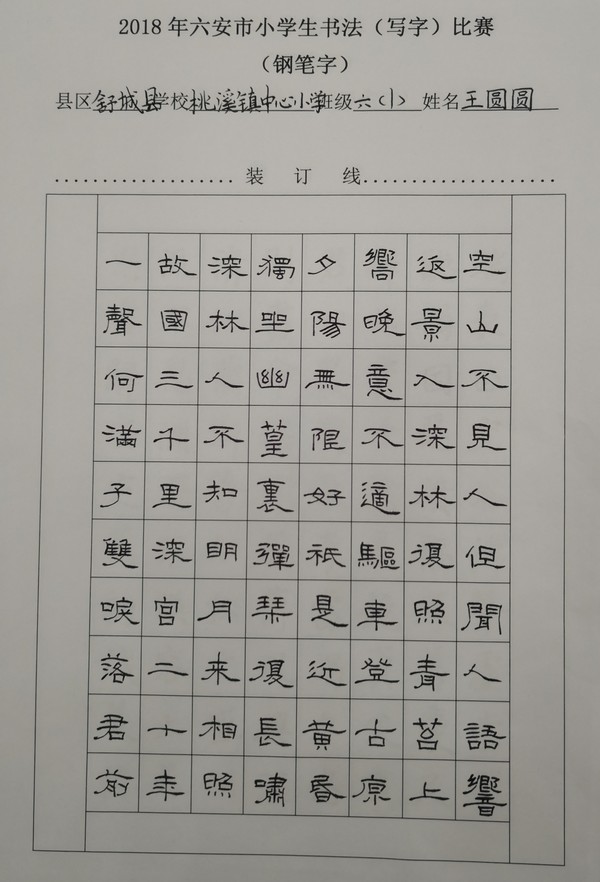 2018年六安市小学生书法（写字）比赛
（钢笔字）
县区舒城县学校桃溪镇中心小学班级六（1）姓名王圆圆
装 订 线
空山不見人但聞人語響
返景入深林復照青苔上
嚮晚意不適驅車登古原
夕陽無限好祇是近黃昏
獨坐幽篁裏彈琴復長嘯
深林人不知明月来相照
故國三千里深宮二十年
一聲何滿子雙唳落君前